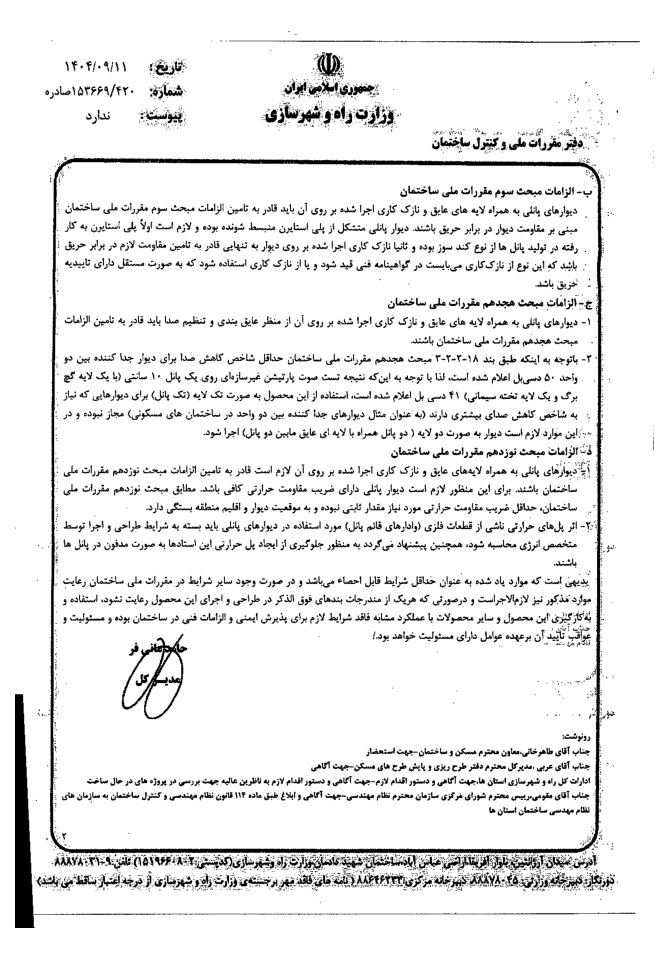 تاریخ: ۱۴۰۴/۰۹/۱۱
شماره: ۱۵۳۶۶۹/۴۲۰صادره
پیوست: ندارد
جمهوری اسلامی ایران
وزارت راه و شهرسازی
دفتر مقررات ملی و کنترل ساختمان
ب- الزامات مبحث سوم مقررات ملی ساختمان
دیوارهای پانلی به همراه لایه های عایق و نازک کاری اجرا شده بر روی آن باید قادر به تامین الزامات مبحث سوم مقررات ملی ساختمان
مبنی بر مقاومت دیوار در برابر حریق باشند. دیوار پانلی متشکل از پلی استایرن منبسط شونده بوده و لازم است اولاً پلی استایرن به کار
رفته در تولید پانل ها از نوع کند سوز بوده و ثانیا نازک کاری اجرا شده بر روی دیوار به تنهایی قادر به تامین مقاومت لازم در برابر حریق
باشد که این نوع از نازک‌کاری می‌بایست در گواهینامه فنی قید شود و یا از نازک کاری استفاده شود که به صورت مستقل دارای تاییدیه
حریق باشد.
ج- الزامات مبحث هجدهم مقررات ملی ساختمان
۱- دیوارهای پانلی به همراه لایه های عایق و نازک کاری اجرا شده بر روی آن از منظر عایق بندی و تنظیم صدا باید قادر به تامین الزامات
مبحث هجدهم مقررات ملی ساختمان باشند.
۲- باتوجه به اینکه طبق بند ۱۸-۲-۲-۳ مبحث هجدهم مقررات ملی ساختمان حداقل شاخص کاهش صدا برای دیوار جدا کننده بین دو
واحد ۵۰ دسی‌بل اعلام شده است، لذا با توجه به این‌که نتیجه تست صوت پارتیشن غیرسازه‌ای روی یک پانل ۱۰ سانتی (با یک لایه گچ
برگ و یک لایه تخته سیمانی) ۴۱ دسی بل اعلام شده است، استفاده از این محصول به صورت تک لایه (تک پانل) برای دیوارهایی که نیاز
به شاخص کاهش صدای بیشتری دارند (به عنوان مثال دیوارهای جدا کننده بین دو واحد در ساختمان های مسکونی) مجاز نبوده و در
این موارد لازم است دیوار به صورت دو لایه ( دو پانل همراه با لایه ای عایق مابین دو پانل) اجرا شود.
د- الزامات مبحث نوزدهم مقررات ملی ساختمان
۱- دیوارهای پانلی به همراه لایه‌های عایق و نازک کاری اجرا شده بر روی آن لازم است قادر به تامین الزامات مبحث نوزدهم مقررات ملی
ساختمان باشند. برای این منظور لازم است دیوار پانلی دارای ضریب مقاومت حرارتی کافی باشد. مطابق مبحث نوزدهم مقررات ملی
ساختمان، حداقل ضریب مقاومت حرارتی مورد نیاز مقدار ثابتی نبوده و به موقعیت دیوار و اقلیم منطقه بستگی دارد.
۲- اثر پل‌های حرارتی ناشی از قطعات فلزی (وادارهای قائم پانل) مورد استفاده در دیوارهای پانلی باید بسته به شرایط طراحی و اجرا توسط
متخصص انرژی محاسبه شود، همچنین پیشنهاد می‌گردد به منظور جلوگیری از ایجاد پل حرارتی این استادها به صورت مدفون در پانل ها
باشند.
بدیهی است که موارد یاد شده به عنوان حداقل شرایط قابل احصاء می‌باشد و در صورت وجود سایر شرایط در مقررات ملی ساختمان رعایت
موارد مذکور نیز لازم‌الاجراست و درصورتی که هریک از مندرجات بندهای فوق الذکر در طراحی و اجرای این محصول رعایت نشود، استفاده و
به‌کارگیری این محصول و سایر محصولات با عملکرد مشابه فاقد شرایط لازم برای پذیرش ایمنی و الزامات فنی در ساختمان بوده و مسئولیت و
عواقب تأیید آن برعهده عوامل دارای مسئولیت خواهد بود./
حامد مانی فر
مدیر کل
رونوشت:
جناب آقای طاهرخانی،معاون محترم مسکن و ساختمان-جهت استحضار
جناب آقای عربی ،مدیرکل محترم دفتر طرح ریزی و پایش طرح های مسکن-جهت آگاهی
ادارات کل راه و شهرسازی استان ها،جهت آگاهی و دستور اقدام لازم-جهت آگاهی و دستور اقدام لازم به ناظرین عالیه جهت بررسی در پروژه های در حال ساخت
جناب آقای مقومی،رییس محترم شورای مرکزی سازمان محترم نظام مهندسی-جهت آگاهی و ابلاغ طبق ماده ۱۱۴ قانون نظام مهندسی و کنترل ساختمان به سازمان های
نظام مهدسی ساختمان استان ها
۲
آدرس: میدان آرژانتین، بلوار آفریقا،اراضی عباس آباد،ساختمان شهید دادمان،وزارت راه وشهرسازی(کدپستی:۱۵۱۹۶۶۰۸۰۲) تلفن:۹-۸۸۸۷۸۰۳۱
دورنگار: دبیرخانه وزارتی: ۸۸۸۷۸۰۴۵، دبیرخانه مرکزی:۸۸۶۴۶۲۳۳ ( نامه های فاقد مهر برجسته‌ی وزارت راه و شهرسازی از درجه اعتبار ساقط می باشد)